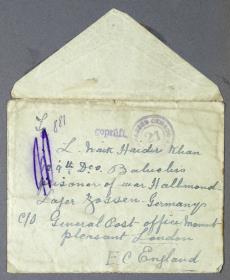 881
geprüft
21
L. Naik Haider Khan
9th Dco. Baluchis
Prisoner of war Hallmond
Lager Zossen Germany
C/O General Post office Mount
pleasant London
E C England